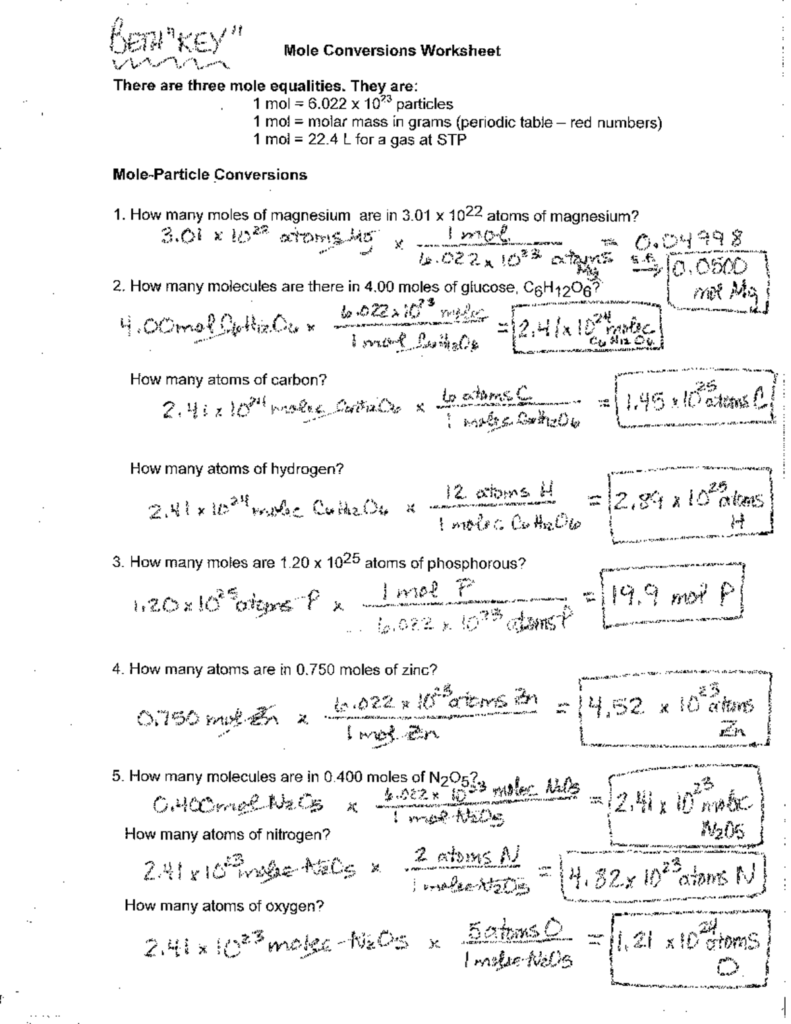 BETH "KEY"
Mole Conversions Worksheet
There are three mole equalities. They are:
1 mol = 6.022 x 10²³ particles
1 mol = molar mass in grams (periodic table – red numbers)
1 mol = 22.4 L for a gas at STP
Mole-Particle Conversions
1. How many moles of magnesium are in 3.01 x 10²² atoms of magnesium?
3.01 x 10²² atoms Mg x 1 mol / 6.022 x 10²³ atoms Mg = 0.04998
s.f. 0.0500 mol Mg
2. How many molecules are there in 4.00 moles of glucose, C₆H₁₂O₆?
4.00 mol C₆H₁₂O₆ x 6.022 x 10²³ molec / 1 mol C₆H₁₂O₆ = 2.41 x 10²⁴ molec C₆H₁₂O₆
How many atoms of carbon?
2.41 x 10²⁴ molec C₆H₁₂O₆ x 6 atoms C / 1 molec C₆H₁₂O₆ = 1.45 x 10²⁵ atoms C
How many atoms of hydrogen?
2.41 x 10²⁴ molec C₆H₁₂O₆ x 12 atoms H / 1 molec C₆H₁₂O₆ = 2.89 x 10²⁵ atoms H
3. How many moles are 1.20 x 10²⁵ atoms of phosphorous?
1.20 x 10²⁵ atoms P x 1 mol P / 6.022 x 10²³ atoms P = 19.9 mol P
4. How many atoms are in 0.750 moles of zinc?
0.750 mol Zn x 6.022 x 10²³ atoms Zn / 1 mol Zn = 4.52 x 10²³ atoms Zn
5. How many molecules are in 0.400 moles of N₂O₅?
0.400 mol N₂O₅ x 6.022 x 10²³ molec N₂O₅ / 1 mol N₂O₅ = 2.41 x 10²³ molec N₂O₅
How many atoms of nitrogen?
2.41 x 10²³ molec N₂O₅ x 2 atoms N / 1 molec N₂O₅ = 4.82 x 10²³ atoms N
How many atoms of oxygen?
2.41 x 10²³ molec N₂O₅ x 5 atoms O / 1 molec N₂O₅ = 1.21 x 10²⁴ atoms O